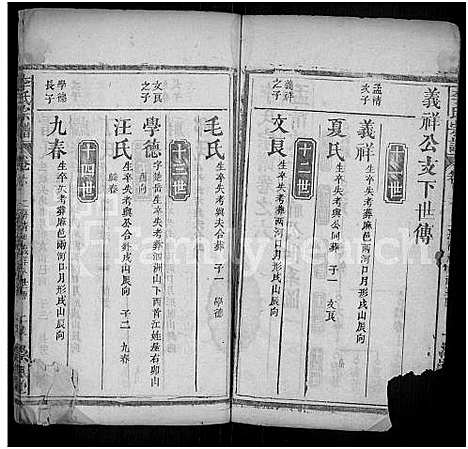 義祥公支下世傳
孟清
次子
義祥
生卒失考葬麻邑兩河口月形戌山辰向
夏氏
生卒失考與公同葬 子一 文艮
十二世
義祥
之子
文艮
生卒失考葬麻邑兩河口月形戌山辰向
毛氏
生卒失考與夫合葬 子一 學德
十三世
文艮
之子
學德
字楚岳生卒失考葬泗洲山下西首江姓屋右卯山
酉向
汪氏
生卒失考與公合針戌山辰向 子二 九春
十四世
學德
長子
九春
生卒失考葬麻邑兩河口月形戌山辰向
FamilySearch